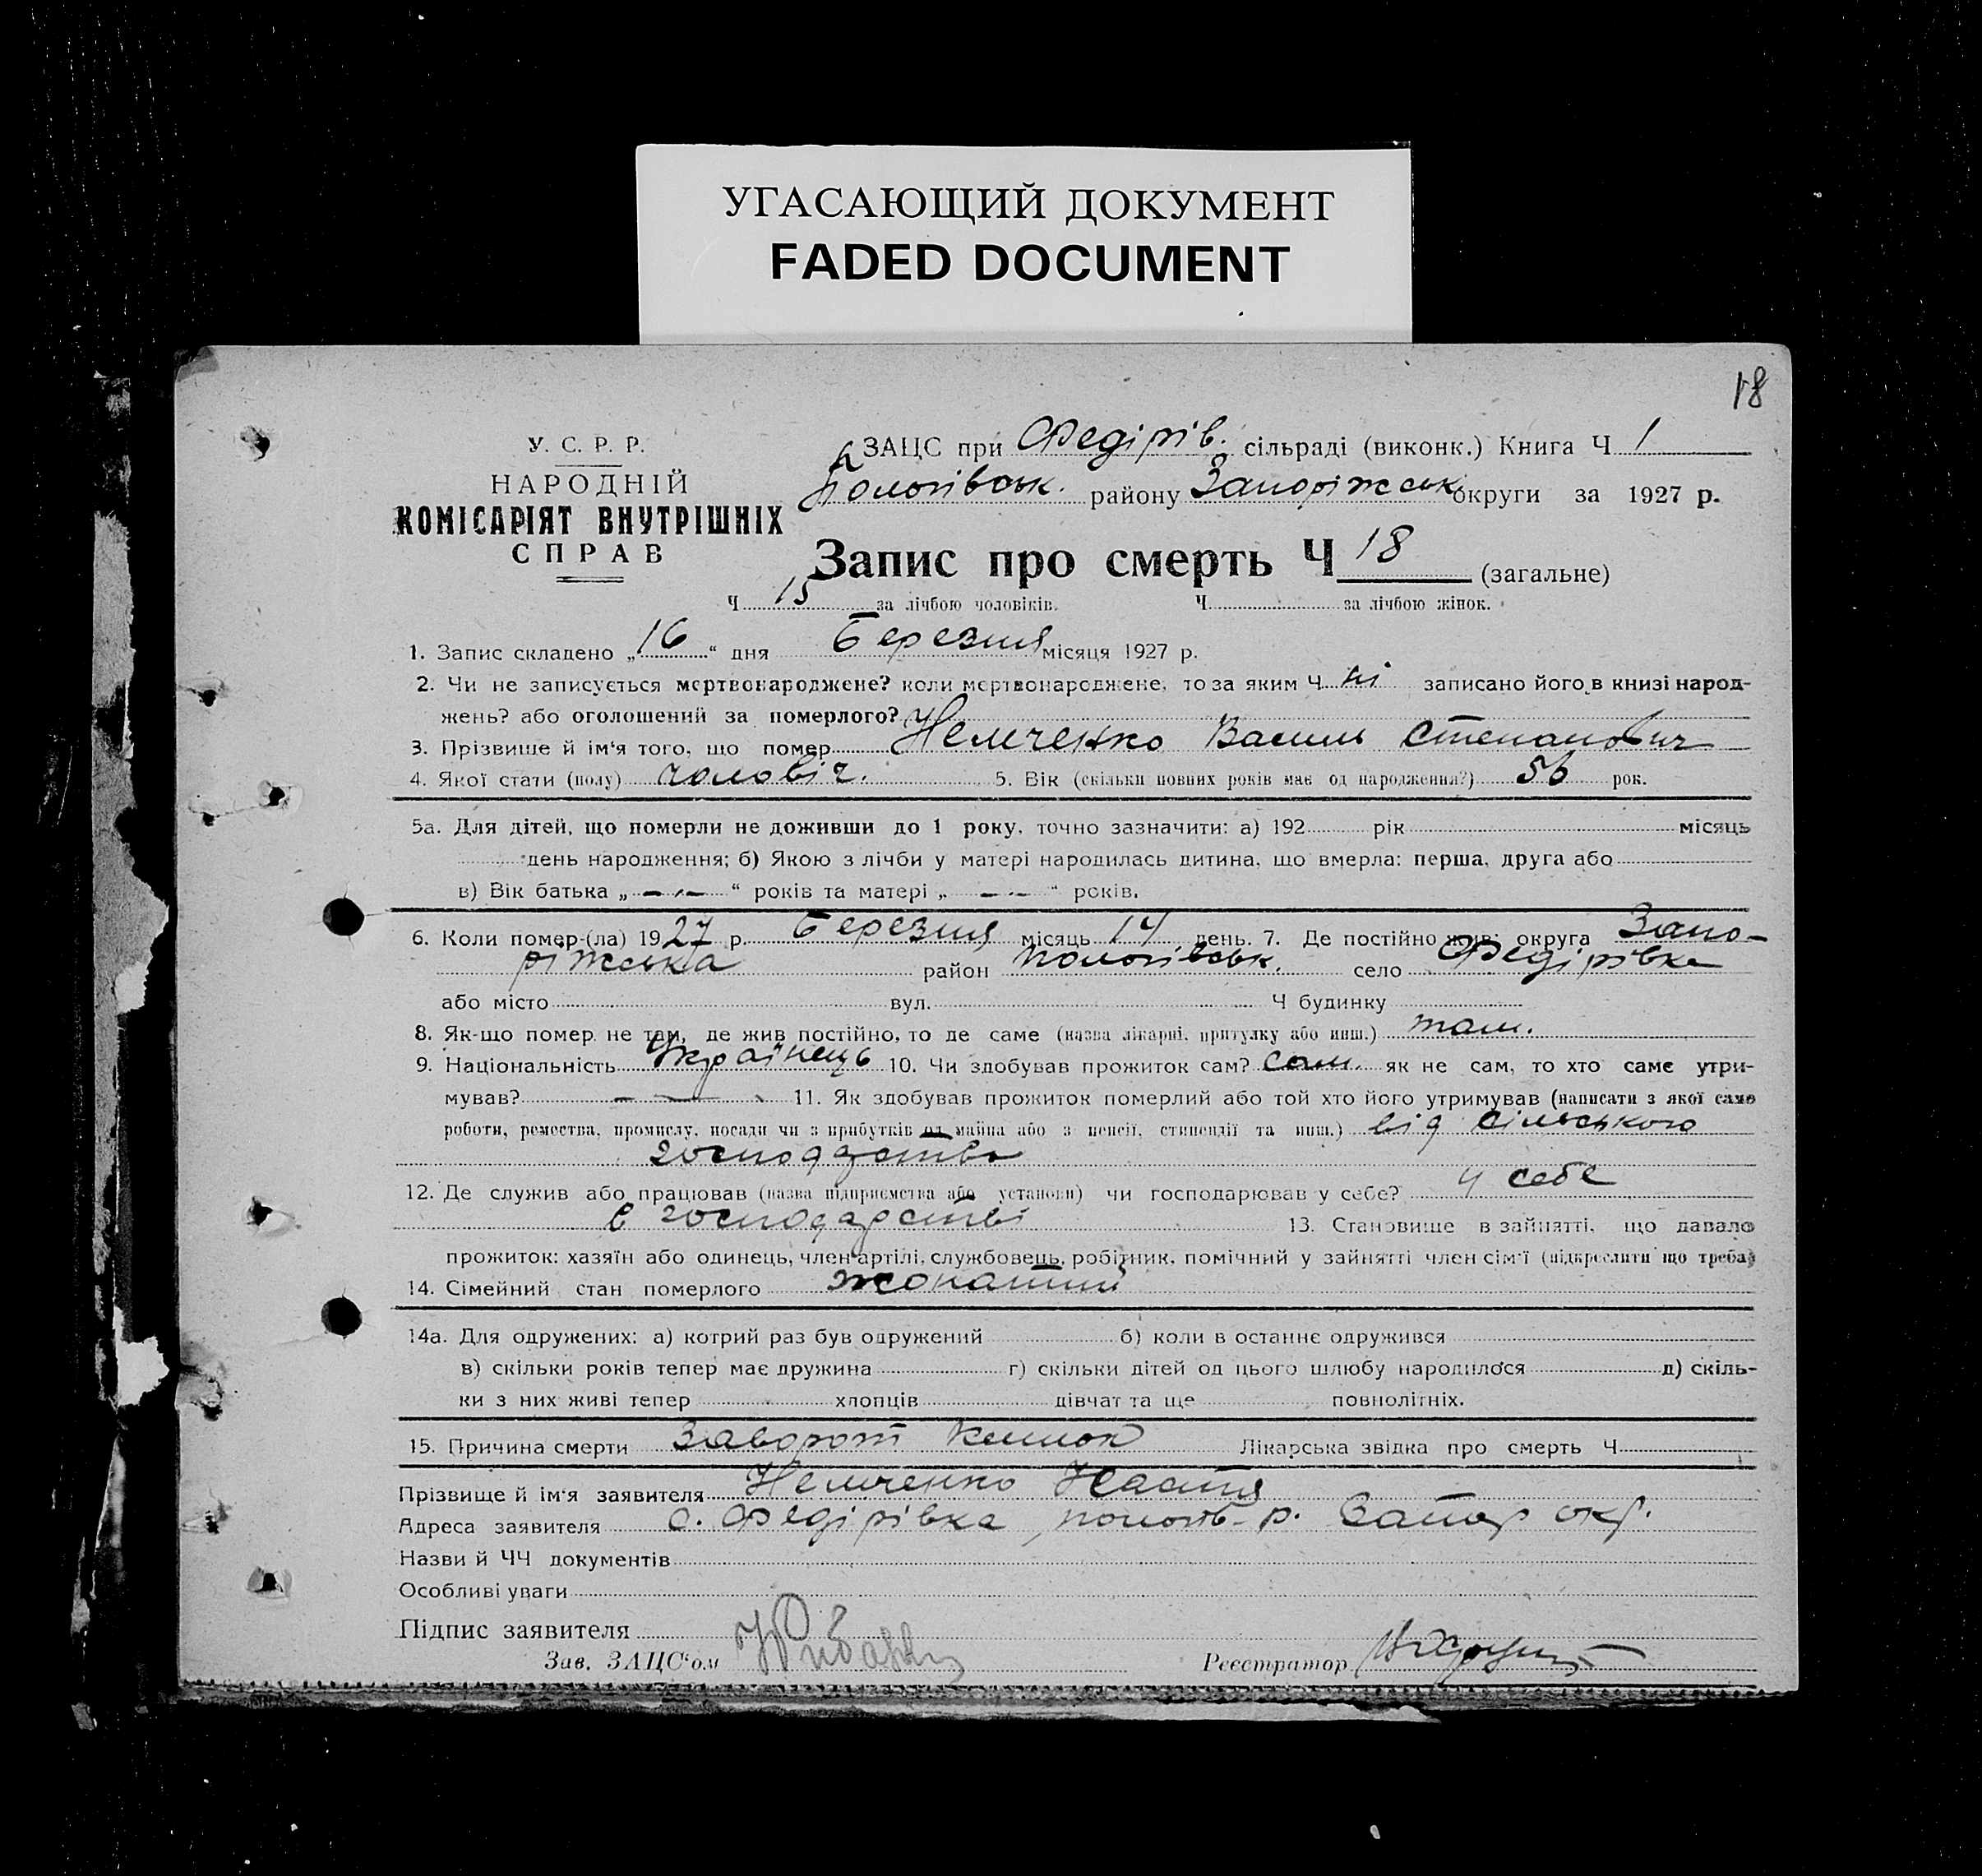 УГАСАЮЩИЙ ДОКУМЕНТ
FADED DOCUMENT
18
У. С. Р. Р.
НАРОДНІЙ
КОМІСАРІЯТ ВНУТРІШНІХ
СПРАВ
ЗАЦС при Федірів. сільраді (виконк.) Книга Ч 1
Пологівськ. району Запоріжськ округи за 1927 р.
Запис про смерть Ч 18 (загальне)
Ч 15 за лічбою чоловіків. Ч за лічбою жінок.
1. Запис складено „16“ дня Березня місяця 1927 р.
2. Чи не записується мертвонароджене? коли мертвонароджене, то за яким Ч ні записано його в книзі народ-
жень? або оголошений за померлого?
3. Прізвище й ім'я того, що помер Немченко Василь Степанович
4. Якої стати (полу) чоловіч. 5. Вік (скільки повних років має од народження?) 56 рок.
5а. Для дітей, що померли не доживши до 1 року, точно зазначити: а) 192 рік місяць
день народження; б) Якою з лічби у матері народилась дитина, що вмерла: перша, друга або
в) Вік батька „ — „ — “ років та матері „ — „ — “ років.
6. Коли помер-(ла) 1927 р. Березня місяць 14 день. 7. Де постійно жив: округа Запо-
ріжська район Пологівськ. село Федірівка
або місто вул. Ч будинку
8. Як-що помер не там, де жив постійно, то де саме (назва лікарні, притулку або инш.) там.
9. Національність Українець 10. Чи здобував прожиток сам? сам. як не сам, то хто саме утри-
мував? — — 11. Як здобував прожиток померлий або той хто його утримував (написати з якої саме
роботи, ремества, промислу, посади чи з прибутків од майна або з пенсії, стипендії та инш.) від сільського
господарства
12. Де служив або працював (назва підприємства або установи) чи господарював у себе? у себе
в господарстві 13. Становище в зайнятті, що давало
прожиток: хазяїн або одинець, член артілі, службовець, робітник, помічний у зайнятті член сім'ї (підкреслити що треба)
14. Сімейний стан померлого жонатий
14а. Для одружених: а) котрий раз був одружений б) коли в останнє одружився
в) скільки років тепер має дружина г) скільки дітей од цього шлюбу народилося д) скіль-
ки з них живі тепер хлопців дівчат та ще повнолітніх.
15. Причина смерти Заворот кишок Лікарська звідка про смерть Ч
Прізвище й ім'я заявителя Немченко Настя
Адреса заявителя с. Федірівка, пологів- р. Запор окр.
Назви й ЧЧ документів
Особливі уваги
Підпис заявителя
Зав. ЗАЦС'ом
Реєстратор